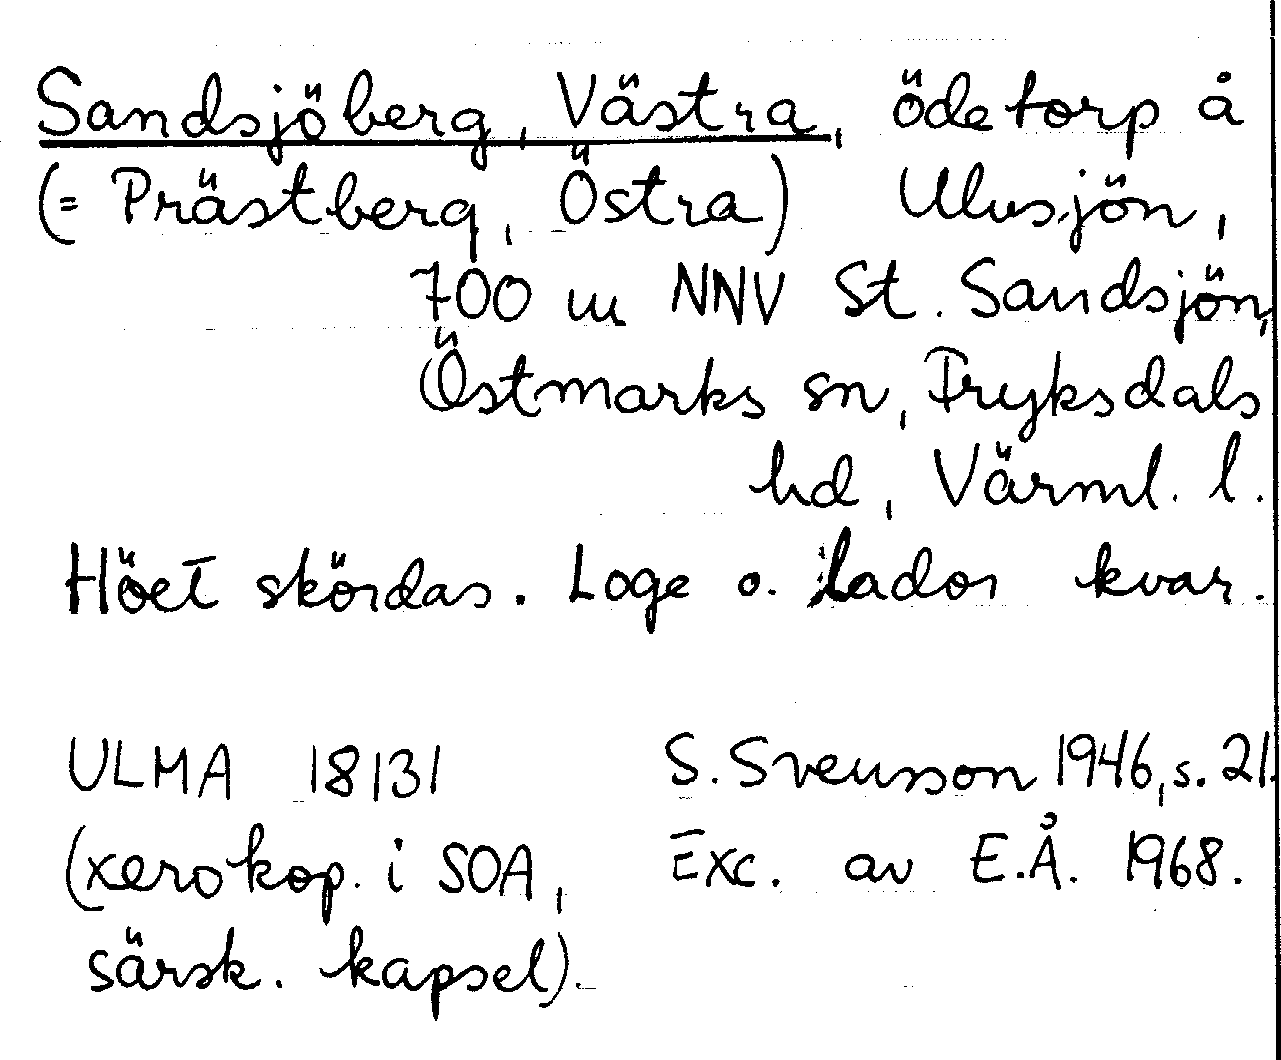 Sandsjöberg, Västra, ödetorp å
(= Prästberg, Östra) Ulvsjön,
700 m NNV St. Sandsjön,
Östmarks sn, Fryksdals
hd, Värml. l.
Höet skördas. Loge o. lador kvar.
ULMA 18131 S. Svensson 1946, s. 21.
(xerokop. i SOA, Exc. av E.Å. 1968.
särsk. kapsel).